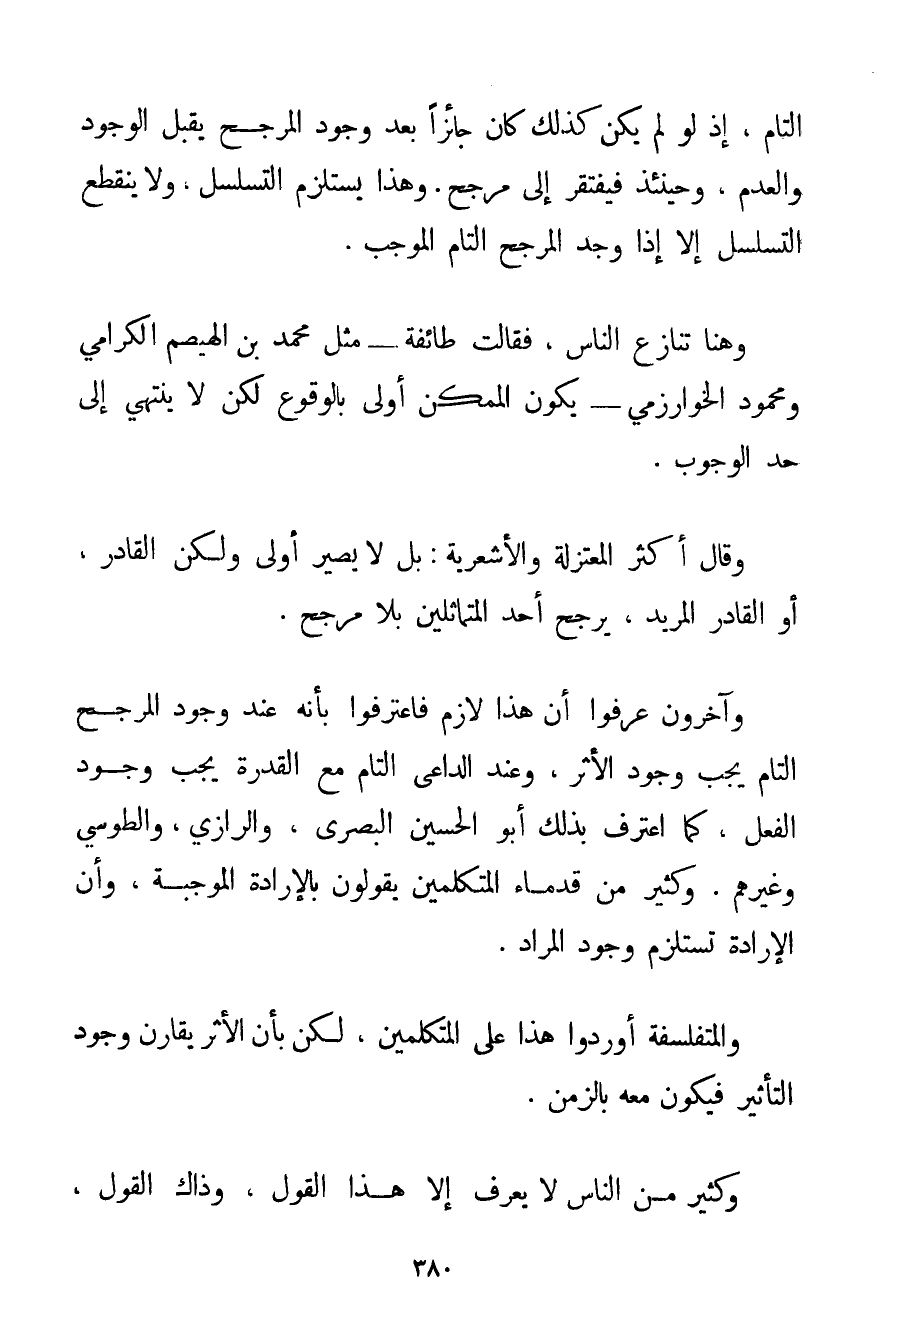 التام ، إذ لو لم يكن كذلك كان جائزاً بعد وجود المرجح يقبل الوجود
والعدم ، وحينئذ فيفتقر إلى مرجح . وهذا يستلزم التسلسل ، ولا ينقطع
التسلسل إلا إذا وجد المرجح التام الموجب .
وهنا تنازع الناس ، فقالت طائفة — مثل محمد بن الهيصم الكرامي
ومحمود الخوارزمي — يكون الممكن أولى بالوقوع لكن لا ينتهي إلى
حد الوجوب .
وقال أكثر المعتزلة والأشعرية : بل لا يصير أولى ولكن القادر ،
أو القادر المريد ، يرجح أحد المتماثلين بلا مرجح .
وآخرون عرفوا أن هذا لازم فاعترفوا بأنه عند وجود المرجح
التام يجب وجود الأثر ، وعند الداعى التام مع القدرة يجب وجود
الفعل ، كما اعترف بذلك أبو الحسين البصرى ، والرازي ، والطوسي
وغيرهم . وكثير من قدماء المتكلمين يقولون بالإرادة الموجبة ، وأن
الإرادة تستلزم وجود المراد .
والمتفلسفة أوردوا هذا على المتكلمين ، لكن بأن الأثر يقارن وجود
التأثير فيكون معه بالزمن .
وكثير من الناس لا يعرف إلا هذا القول ، وذاك القول ،
٣٨٠